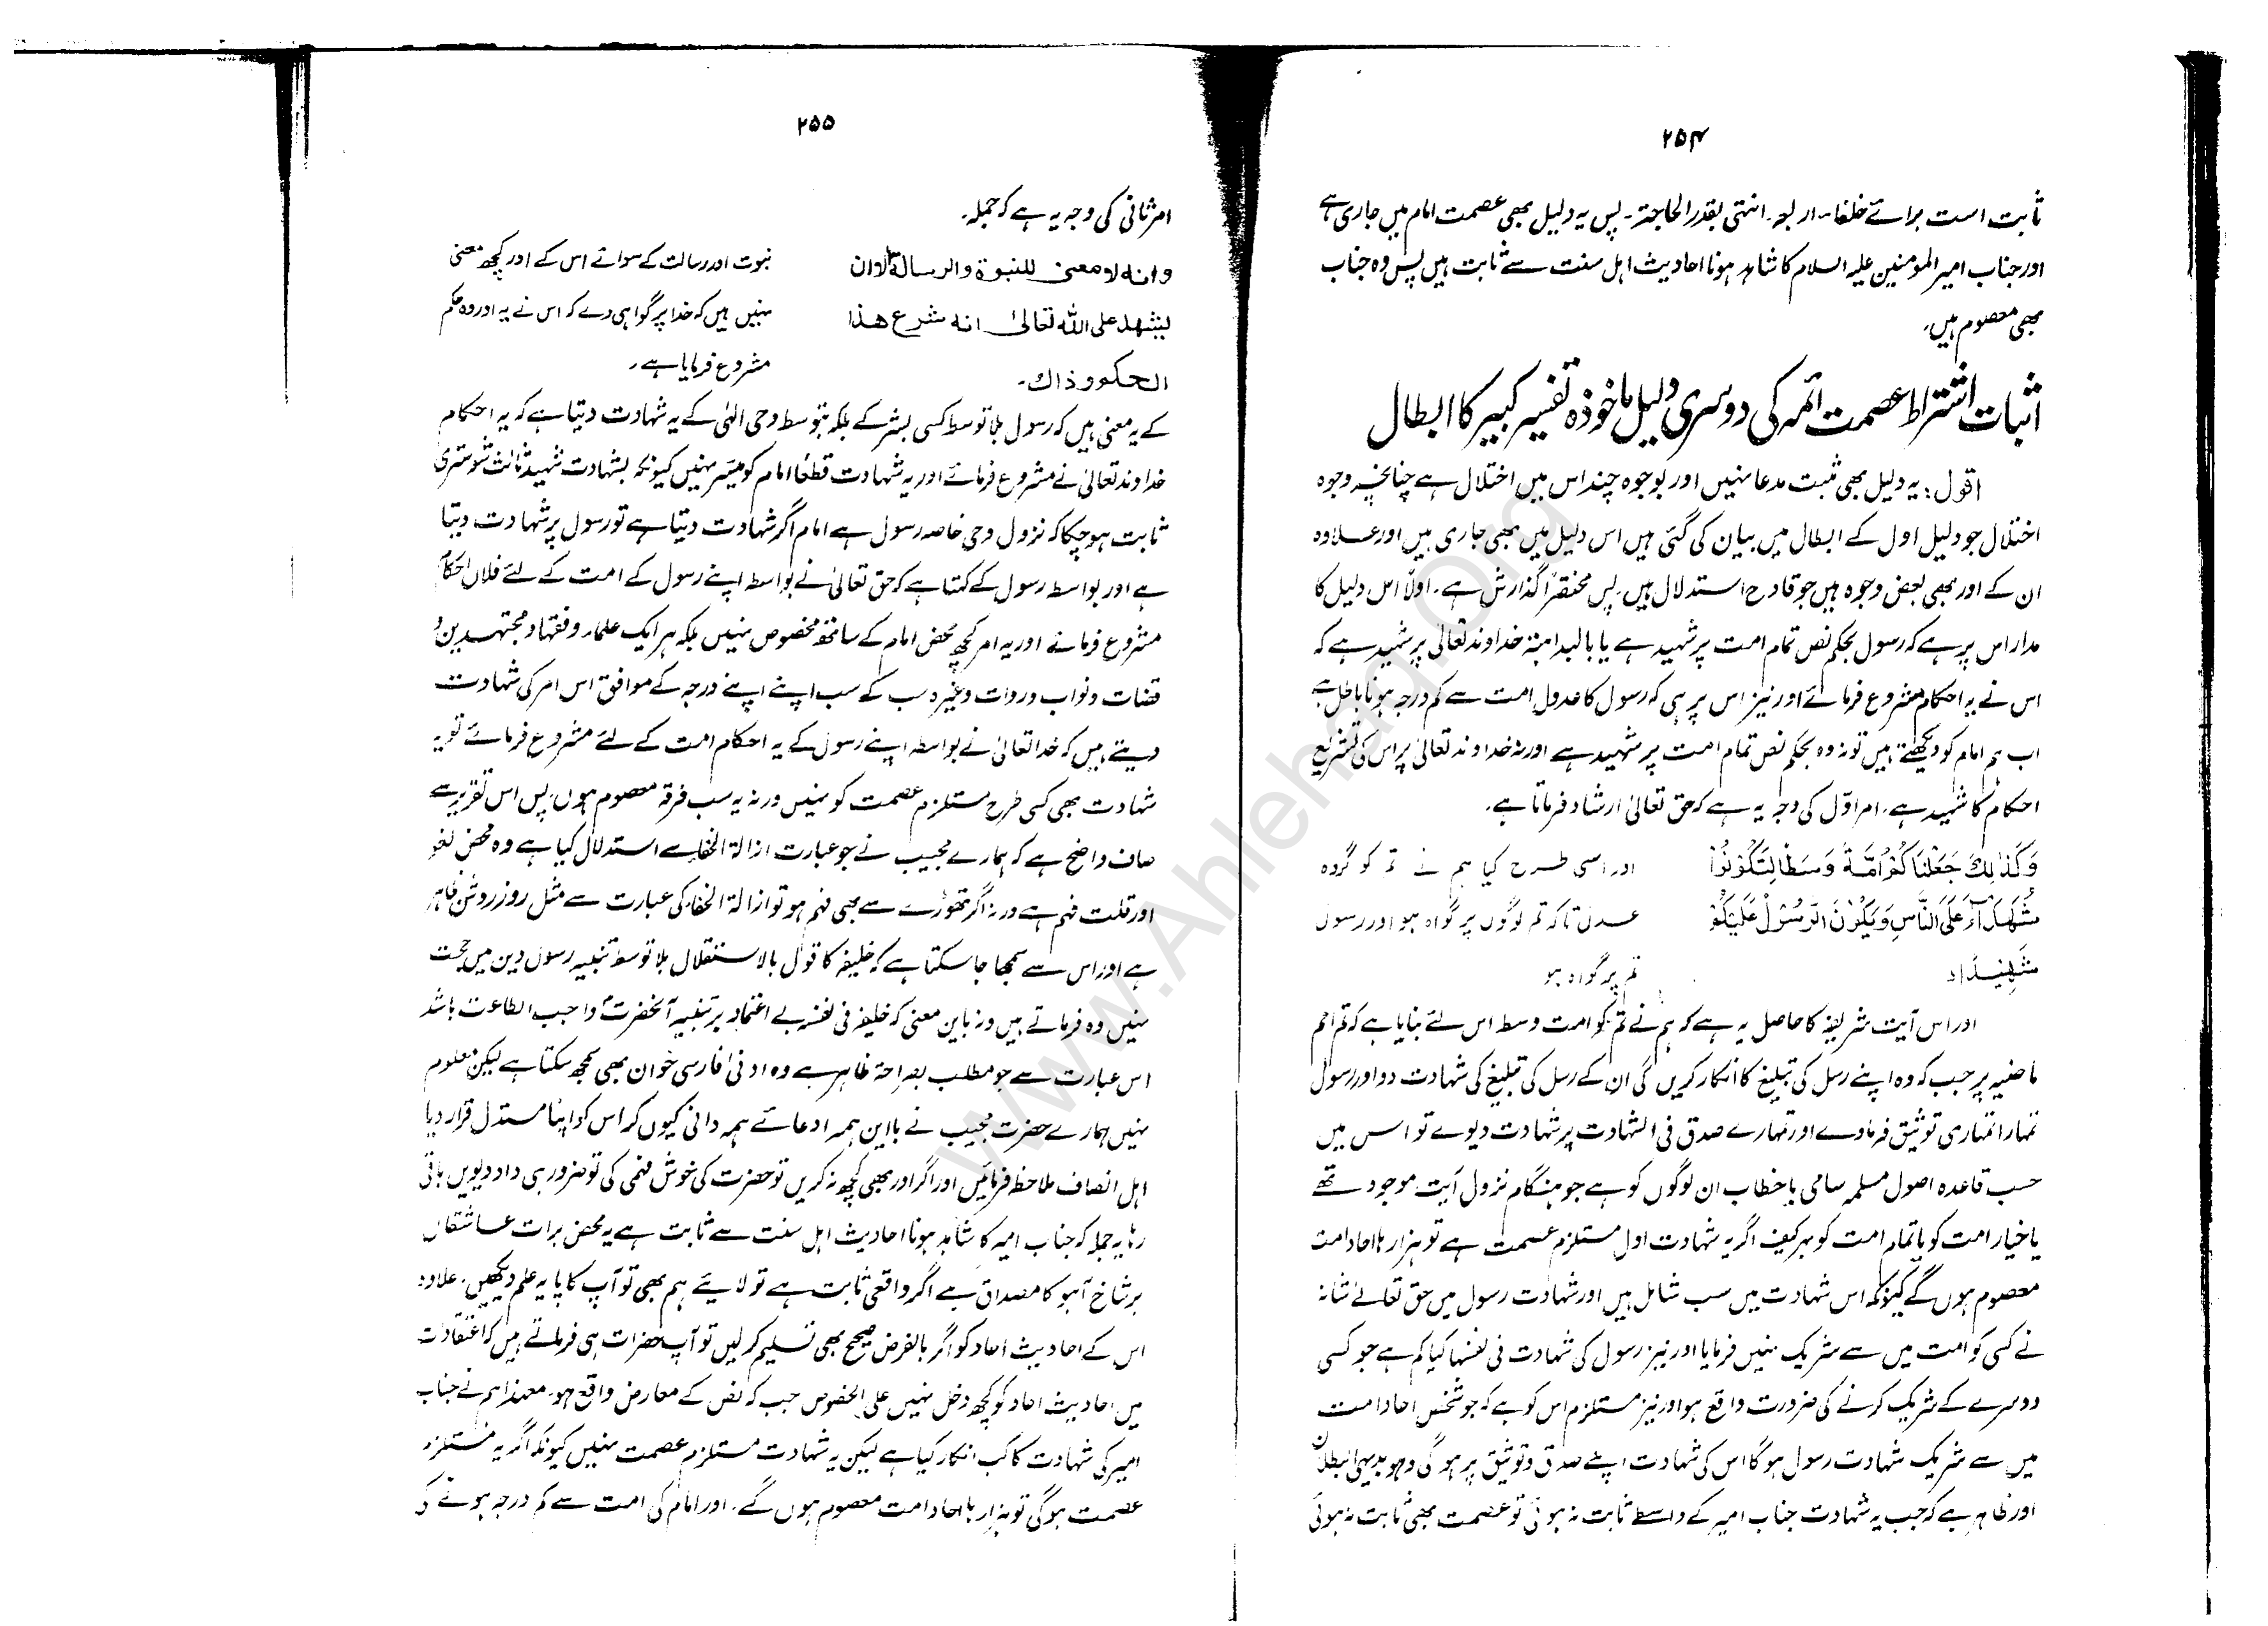 ۲۵۴
ثابت است برائے خلفاء اربعہ انتہی بقدر الحاجتہ۔ پس یہ دلیل بھی عصمت امام میں جاری ہے
اور جناب امیر المومنین علیہ السلام کا شاہد ہونا احادیث اہل سنت سے ثابت ہیں پس وہ جناب
بھی معصوم ہیں۔
اثبات اشتراط عصمت ائمہ کی دوسری دلیل ماخوذہ تفسیر کبیر کا ابطال
اقول: یہ دلیل بھی مثبت مدعا نہیں اور بوجوہ چند اس میں اختلال ہے چنانچہ وجوہ
اختلال جو دلیل اول کے ابطال میں بیان کی گئی ہیں اس دلیل میں بھی جاری ہیں اور علاوہ
ان کے اور بھی بعض وجوہ ہیں جو قادح استدلال ہیں پس مختصراً گذارش ہے۔ اولاً اس دلیل کا
مدار اس پر ہے کہ رسول بحکم نص تمام امت پر شہید ہے یا بالبداہتہ خداوند تعالیٰ پر شہید ہے کہ
اس نے یہ احکام مشروع فرمائے اور نیز اس پر ہی کہ رسول کا عدول امت سے کم درجہ ہونا باطل ہے
اب ہم امام کو دیکھتے ہیں تو نہ وہ بحکم نص تمام امت پر شہید ہے اور نہ خداوند تعالیٰ پر اس کی تشریع
احکام کا شہید ہے۔ امر اوّل کی وجہ یہ ہے کہ حق تعالیٰ ارشاد فرماتا ہے۔
وَكَذٰلِكَ جَعَلْنَاكُمْ اُمَّةً وَسَطًا لِتَكُوْنُوْا اور اسی طرح کیا ہم نے تم کو گروہ
شُهَدَآءَ عَلَى النَّاسِ وَيَكُوْنَ الرَّسُوْلُ عَلَيْكُمْ عدل تاکہ تم لوگوں پر گواہ ہو اور رسول
شَهِيْدًاد تم پر گواہ ہو
اور اس آیت شریفہ کا حاصل یہ ہے کہ ہم نے تم کو امت وسط اس لئے بنایا ہے کہ تم امم
ماضیہ پر جب کہ وہ اپنے رسل کی تبلیغ کا انکار کریں گی ان کے رسل کی تبلیغ کی شہادت دو اور رسول
تمہارا تمہاری توثیق فرمادے اور تمہارے صدق فی الشہادت پر شہادت دیوے تو اس میں
حسب قاعدہ اصول مسلمہ سامی یا خطاب ان لوگوں کو ہے جو ہنگام نزول آیت موجود تھے
یا خیار امت کو یا تمام امت کو بہرکیف اگر یہ شہادت اول مستلزم عصمت ہے تو ہزارہا احاد امت
معصوم ہوں گے کیونکہ اس شہادت میں سب شامل ہیں اور شہادت رسول میں حق تعالےٰ شانہ
نے کسی کو امت میں سے شریک نہیں فرمایا اور نیز رسول کی شہادت فی نفسہا کیا کم ہے جو کسی
دوسرے کے شریک کرنے کی ضرورت واقع ہو اور نیز مستلزم اس کو ہے کہ جو شخص احاد امت
میں سے شریک شہادت رسول ہوگا اس کی شہادت اپنے صدق و توثیق پر ہوگی وہو بدیہی البطلان
اور ظاہر ہے کہ جب یہ شہادت جناب امیر کے واسطے ثابت نہ ہوئی تو عصمت بھی ثابت نہ ہوئی
۲۵۵
امر ثانی کی وجہ یہ ہے کہ جملہ۔
وانه لا معنى للنبوة والرسالة الا ان نبوت اور رسالت کے سوائے اس کے اور کچھ معنی
يشهد على الله تعالىٰ انه شرع هذا نہیں ہیں کہ خدا پر گواہی دے کہ اس نے یہ اور وہ حکم
الحكم وذاك۔ مشروع فرمایا ہے۔
کے یہ معنی ہیں کہ رسول بلا توسط کسی بشر کے بلکہ بتوسط وحی الٰہی کے یہ شہادت دیتا ہے کہ یہ احکام
خداوند تعالیٰ نے مشروع فرمائے اور یہ شہادت قطعاً امام کو میسر نہیں کیونکہ بشہادت شہید ثالث شوستری
ثابت ہوچکا کہ نزول وحی خاصہ رسول ہے امام اگر شہادت دیتا ہے تو رسول پر شہادت دیتا
ہے اور بواسطہ رسول کے کہتا ہے کہ حق تعالیٰ نے بواسطہ اپنے رسول کے امت کے لئے فلاں احکام
مشروع فرمائے اور یہ امر کچھ محض امام کے ساتھ مخصوص نہیں بلکہ ہر ایک علماء و فقہاء و مجتہدین و
قضات و نواب و روات وغیرہ سب کے سب اپنے اپنے درجہ کے موافق اس امر کی شہادت
دیتے ہیں کہ خدا تعالیٰ نے بواسطہ اپنے رسول کے یہ احکام امت کے لئے مشروع فرمائے تو یہ
شہادت بھی کسی طرح مستلزم عصمت کو نہیں ورنہ یہ سب فرقہ معصوم ہوں پس اس تقریر سے
صاف واضح ہے کہ ہمارے مجیب نے جو عبارت ازالۃ الخفا سے استدلال کیا ہے وہ محض لغو
اور قلت فہم ہے ورنہ اگر تھوڑے سے بھی فہم ہو تو ازالۃ الخفاء کی عبارت سے مثل روز روشن ظاہر
ہے اور اس سے سمجھا جا سکتا ہے کہ خلیفہ کا قول بالاستقلال بلا توسط تنبیہ رسول دین میں حجت
نہیں وہ فرماتے ہیں و نہ باین معنی کہ خلیفہ فی نفسہ بے اعتماد بر تنبیہ آنحضرتؐ واجب الطاعت باشد
اس عبارت سے جو مطلب بصراحۃ ظاہر ہے وہ ادنیٰ فارسی خوان بھی سمجھ سکتا ہے لیکن معلوم
نہیں ہمارے حضرت مجیب نے با این ہمہ ادعائے ہمہ دانی کیوں کر اس کو اپنا مستدل قرار دیا
اہل انصاف ملاحظہ فرمائیں اور اگر اور بھی کچھ نہ کریں تو حضرت کی خوش فہمی کی تو ضرور ہی داد دیویں باقی
رہا یہ جملہ کہ جناب امیر کا شاہد ہونا احادیث اہل سنت سے ثابت ہے یہ محض برات عاشقاں
برشاخ آہو کا مصداق ہے اگر واقعی ثابت ہے تو لایئے ہم بھی تو آپ کا پایہ علم دیکھیں۔ علاوہ
اس کے احادیث احاد کو اگر بالفرض صحیح بھی تسلیم کر لیں تو آپ حضرات ہی فرماتے ہیں کہ اعتقادات
میں احادیث احاد کو کچھ دخل نہیں علی الخصوص جب کہ نص کے معارض واقع ہو۔ معہذا ہم نے جناب
امیر کی شہادت کا کب انکار کیا ہے لیکن یہ شہادت مستلزم عصمت نہیں کیونکہ اگر یہ مستلزم
عصمت ہوگی تو ہزارہا احاد امت معصوم ہوں گے۔ اور امام کی امت سے کم درجہ ہونے کی
www.Ahlehaq.org